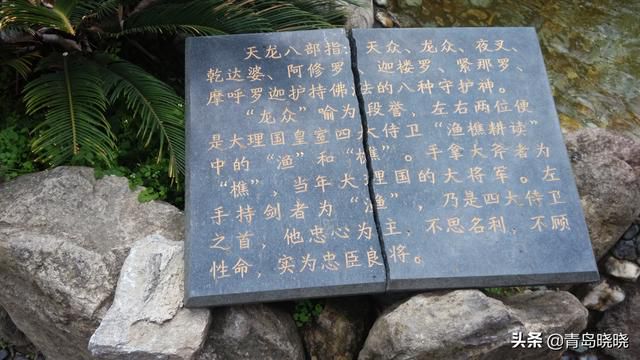 天龙八部指：天众、龙众、夜叉、
乾达婆、阿修罗、迦楼罗、紧那罗、
摩呼罗迦护持佛法的八种守护神。
“龙众”喻为段誉，左右两位便
是大理国皇室四大侍卫“渔樵耕读”
中的“渔”和“樵”。手拿大斧者为
“樵”，当年大理国的大将军。左
手持剑者为“渔”，乃是四大侍卫
之首，他忠心为主，不思名利，不顾
性命，实为忠臣良将。
头条 @青岛晓晓